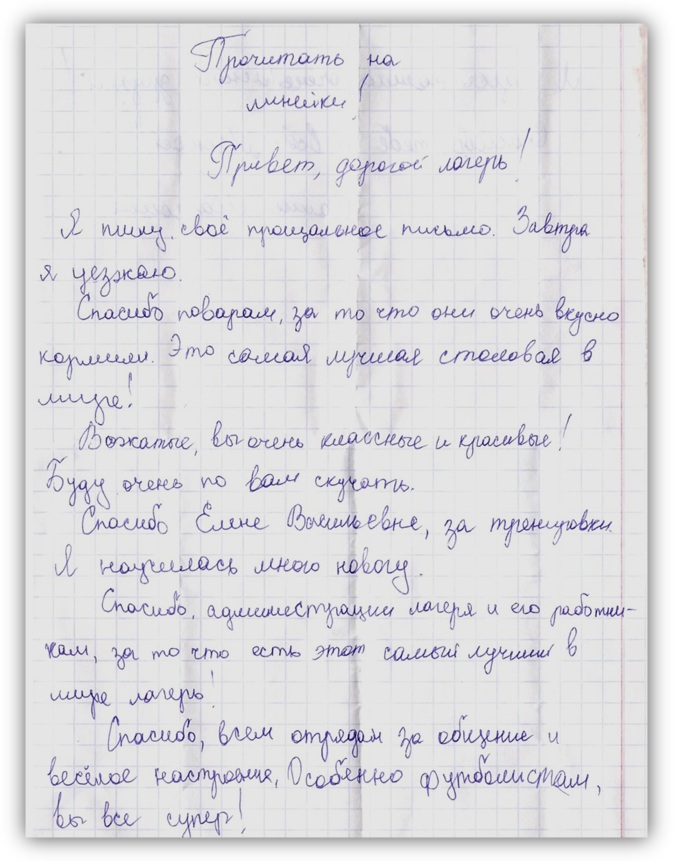 Прочитать на
линейки!
Привет, дорогой лагерь!
Я пишу своё прощальное письмо. Завтра
я уезжаю.
Спасибо поварам, за то что они очень вкусно
кормили. Это самая лучшая столовая в
мире!
Вожатые, вы очень классные и красивые!
Буду очень по вам скучать.
Спасибо Елене Васильевне, за тренировки.
Я научилась много новогу.
Спасибо, администрации лагеря и его работни-
кам, за то что есть этот самый лучший в
мире лагерь!
Спасибо, всем отрядам за общение и
весёлое настроение, Особенно футболистам,
вы все супер!